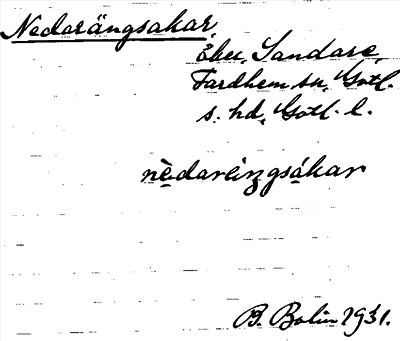 Nedarängsakar
Åker, Sandare,
Fardhem sn, Gotl.
s. hd, Gotl. l.
nèdaréiŋgsákar
B. Bolin 1931.